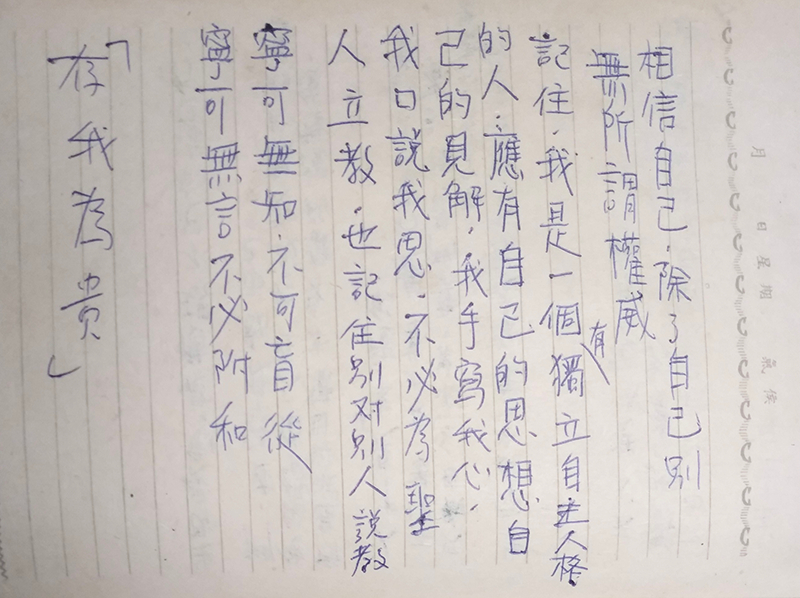 月 日 星期 候
相信自己.除了自己別
無所謂權威
記住.我是一個有獨立自主人格
的人.應有自己的思想自
己的見解,我手寫我心,
我口說我思.不必為聖
人立教.也記住別对別人說教
寧可無知.不可盲從
寧可無言不必附和
「存我為貴」